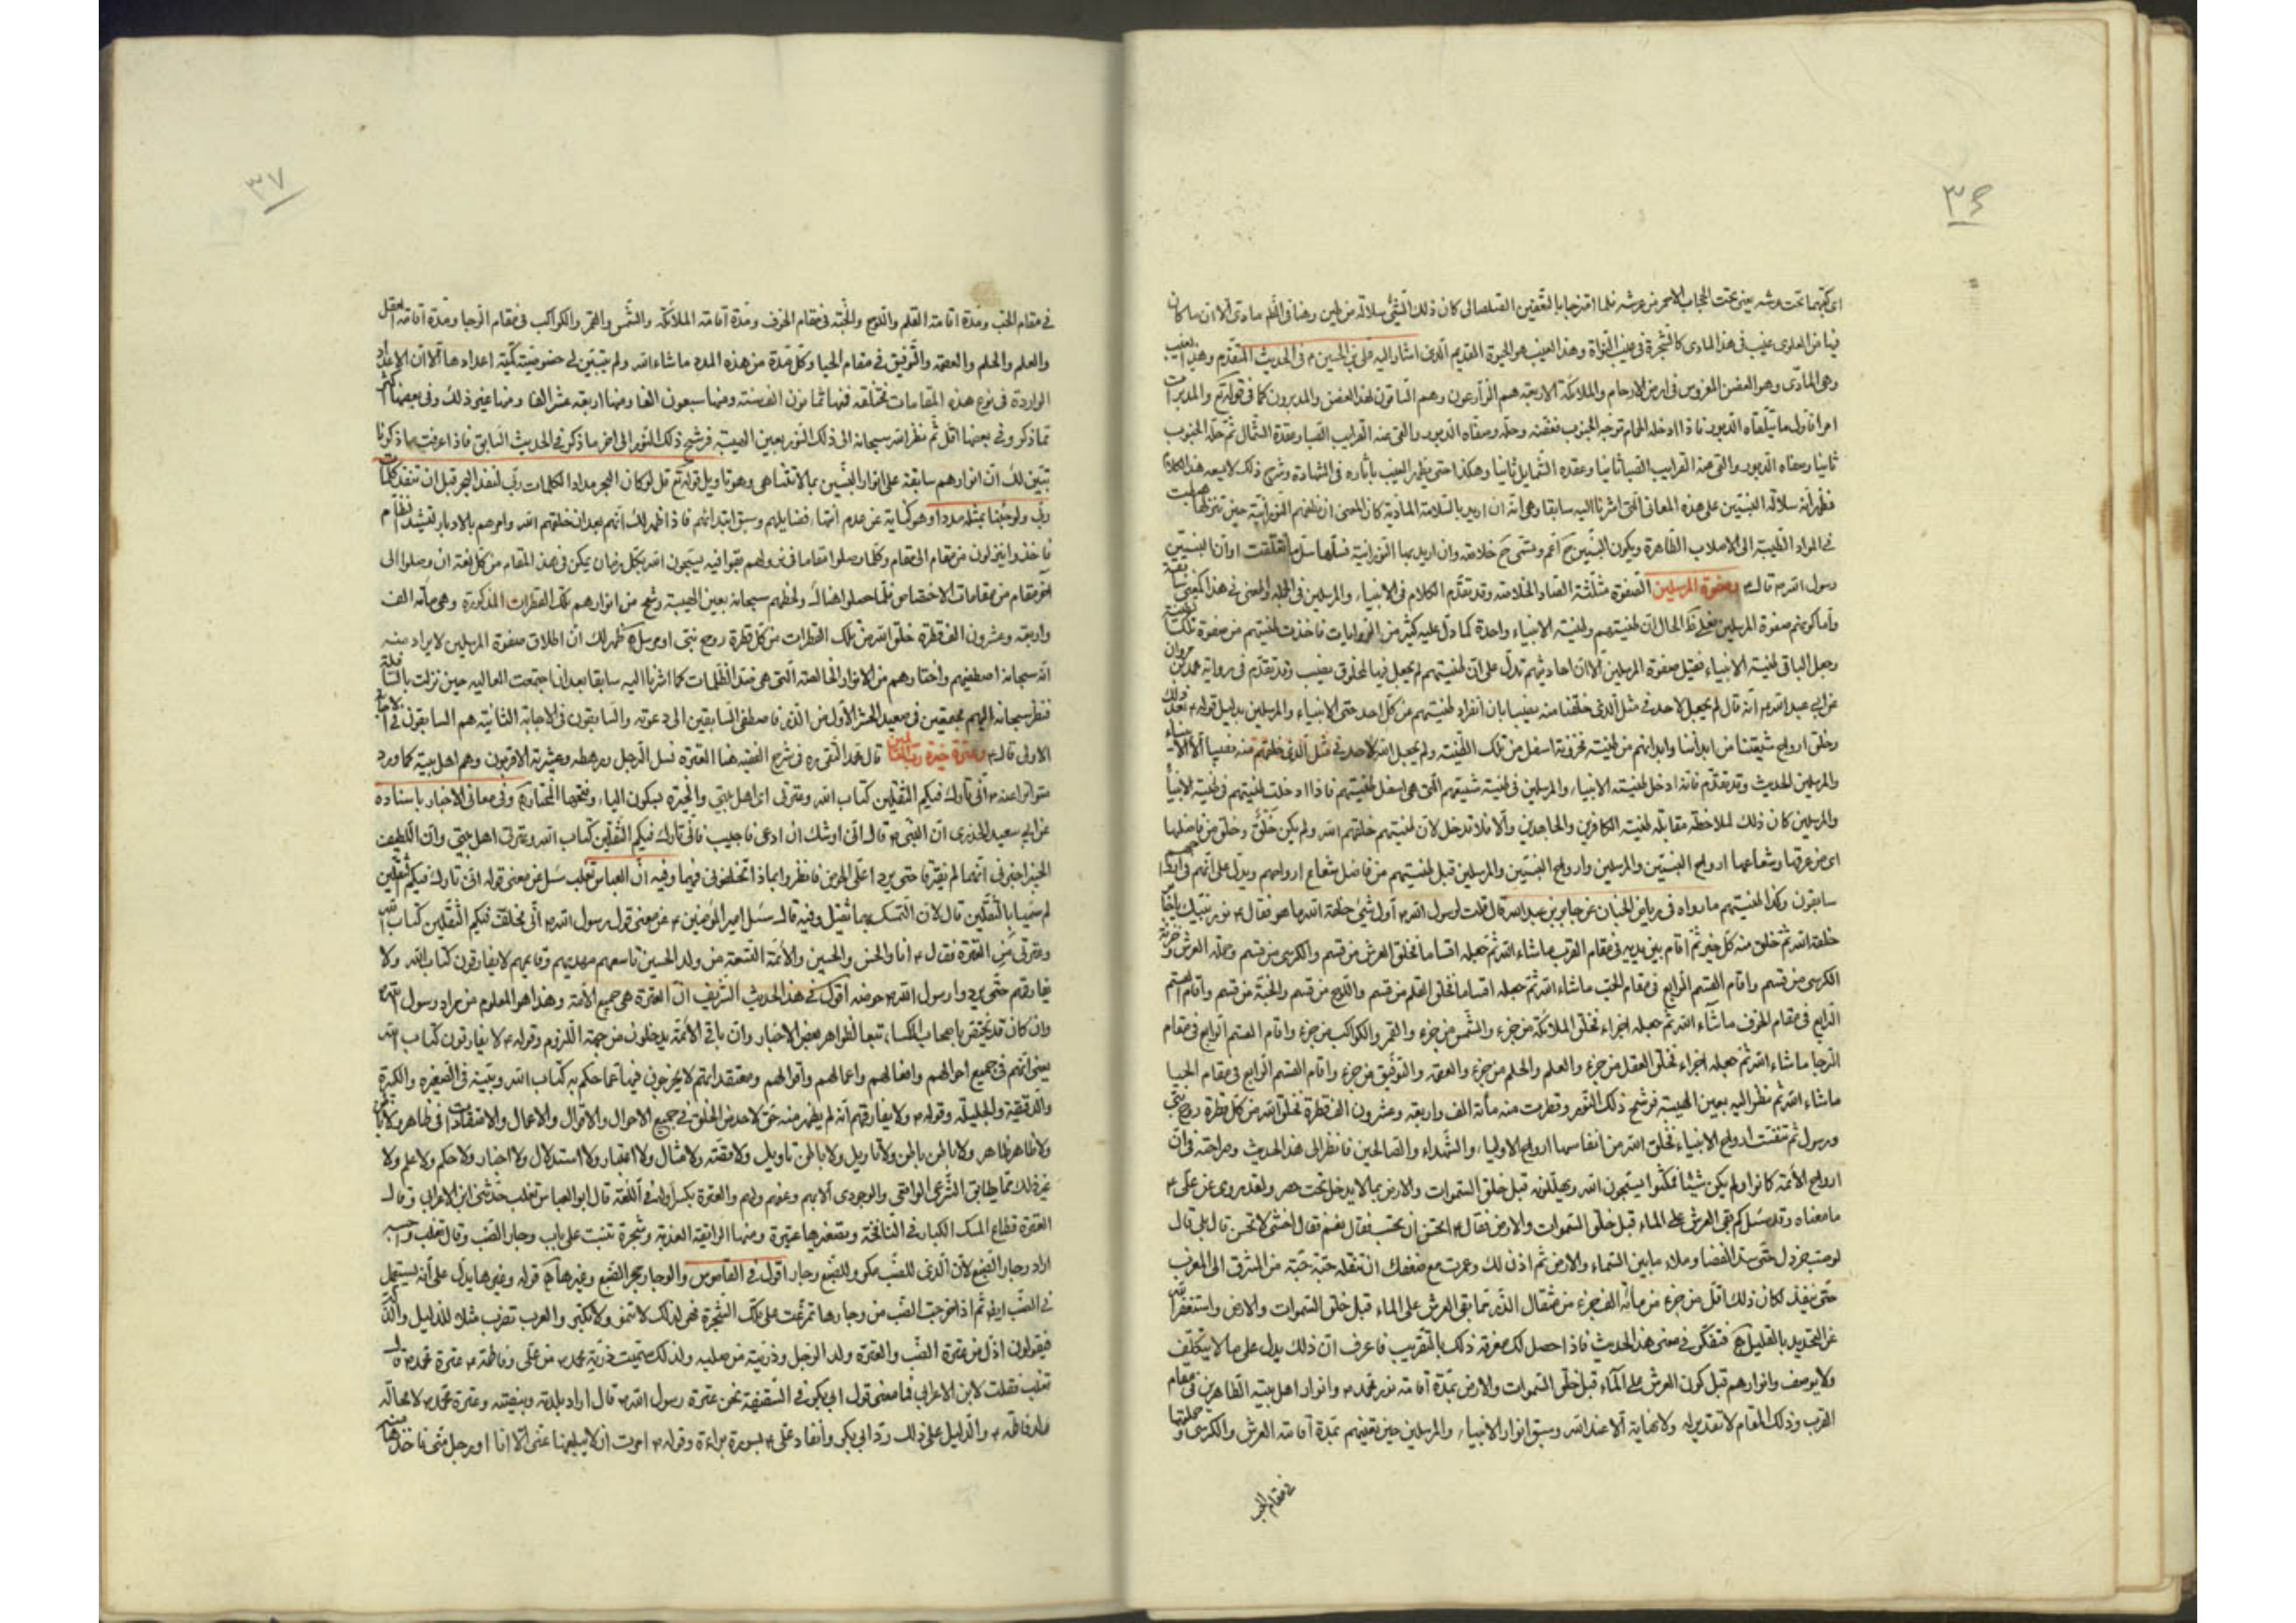 ٣٦
اى كبّهما تحت عرشه يعنى تحت الحجاب الاحمر من عرشه فلما امتزجا بالتعفين الصلصالى كان ذلك الشئ سلالة من طين وهنا فى الظم مادى الا ان ما كان
فيها من المادى غيب فى هذا المادى كالشجرة فى غيب النواة وهذا الغيب هو الحيوة القديم الذى اشار اليه على بن الحسين ع فى الحديث المتقدم وهذا الغيب
وهى المادّى وهو الغصن المغروس فى ارض الارحام والملائكة الاربعة هم الزارعون وهم الساقون لهذا الغصن والمدبرون كما فى قوله تع والمدبرات
امرا فاول ما يتلقاه الدبور فاذا ادخله الحمام توجه الجنوب فعفنه وحله وسقاه الدبور والقى عنه الغرايب الصبا وعقده الشمال ثم حله الجنوب
ثانيا وسقاه الدبور والقى عنه الغرايب الصبا ثانيا وعقده الشمايل ثانيا وهكذا حتى يظهر الغيب باثاره فى الشهادة وشرح ذلك لا يسعه هذا الكلام
فظهر انه سلالة النبيين على هذه المعانى التى اشرنا اليه سابقا وهى انه ان اريد بالسلامة المادية كان المعنى ان نطفهم النورانية حين تنزلها
فى المواد الطيبة الى الاصلاب الطاهرة ويكون النبيين ح اعم وتسمى ح خلاصة وان اريد بها النورانية فسلّها سل ما تعلقت او ان النبيين
رسول الله ص قال ع وصفوة المرسلين الصفوة مثلثة الصاد الخلاصة وقد تقدم الكلام فى الانبياء والمرسلين فى الجملة والمعنى فى هذا كمعنى سابقه
واما كونهم صفوة المرسلين فعلى ظ الحال ان طينتهم وطينة الانبياء واحدة كما دل عليه كثير من الروايات فاخذت طينتهم من صفوة تلك الطينة
وجعل الباقى طينة الانبياء فقيل صفوة المرسلين الا ان احاديثهم تدل على ان طينتهم لم يجعل فيها لمخلوق نصيب وقد تقدم فى رواية محمد بن مروان
عن ابى عبد الله ع انه قال لم يجعل لاحد فى مثل الذى خلقنا منه نصيبا بان انفراد طينتهم عن كل احد حتى الانبياء والمرسلين بدليل قوله ع بعد ذلك
وخلق ارواح شيعتنا من ابداننا وابدانهم من طينة مخزونة اسفل من تلك الطينة ولم يجعل الله لاحد فى مثل الذى خلقهم منه نصيبا الا الانبياء
والمرسلين الحديث وقد تقدم فانه ادخل طينة الانبياء والمرسلين فى طينة شيعتهم التى هى اسفل طينتهم فاذا ادخلت طينتهم فى طينة الانبيا
والمرسلين كان ذلك لملاحظة مقابلة طينة الكافرين والجاحدين والا فلا تدخل لان طينتهم خلقهم الله ولم يكن خلق وخلق من فاضلها
اى من عرقها وشعاعها ارواح النبيين والمرسلين وارواح النبيين والمرسلين قبل طينتهم من فاضل شعاع ارواحهم ويدل على انهم فى ارواحهم
سابقون وكذا طينتهم ما رواه فى رياض الجنان عن جابر بن عبد الله قال قلت لرسول الله ص اول شئ خلقه الله ما هو فقال ص نور نبيك يا جابر
خلقه الله ثم خلق منه كل خير ثم اقام بين يديه فى مقام القرب ما شاء الله ثم جعله اقساما فخلق العرش من قسم والكرسى من قسم وحملة العرش وخزنة
الكرسى من قسم واقام القسم الرابع فى مقام الحب ما شاء الله ثم جعله اقساما فخلق القلم من قسم واللوح من قسم والجنة من قسم واقام القسم
الرابع فى مقام الخوف ما شاء الله ثم جعله اجزاء فخلق الملائكة من جزء والشمس من جزء والقمر والكواكب من جزء واقام القسم الرابع فى مقام
الرجا ما شاء الله ثم جعله اجزاء فخلق العقل من جزء والعلم والحلم من جزء والعصمة والتوفيق من جزء واقام القسم الرابع فى مقام الحيا
ما شاء الله ثم نظر اليه بعين الهيبة فرشح ذلك النور وقطرت منه مائة الف واربعة وعشرون الف قطرة فخلق الله من كل قطرة روح نبى
ورسول ثم تنفست ارواح الانبياء فخلق الله من انفاسها ارواح الاولياء والشهداء والصالحين فانظر الى هذا الحديث وصراحته فى ان
ارواح الائمة كانوا ولم يكن شيئا فمكثوا يسبحون الله ويهللونه قبل خلق السموات والارض بما لا يدخل تحت حصر ولقد روى عن على ع
ما معناه وقد سئل كم بقى العرش على الماء قبل خلق السموات والارض فقال ع اتحسن ان تحسب فقال نعم فقال اخشى لا تحسن قال بلى قال
لو صب خردل حتى سد الفضا وملاء ما بين السماء والارض ثم اذن لك وعمرت مع ضعفك ان تنقله حبة حبة من المشرق الى المغرب
حتى نفد لكان ذلك اقل من جزء من مائة الف جزء من مثقال الذر مما بقى العرش على الماء قبل خلق السموات والارض واستغفر الله
عن التحديد بالقليل اه فتفكر فى معنى هذا الحديث فاذا حصل لك معرفة ذلك بالتقريب فاعرف ان ذلك يدل على ما لا يتكيف
ولا يوصف وانوارهم قبل كون العرش على الماء قبل خلق السموات والارض بمدة اقامة نور محمد ص وانوار اهل بيته الطاهرين فى مقام
القرب وذلك المقام لا تقدير له ولا نهاية الا عند الله وسبق انوار الانبياء والمرسلين حين تعينهم بمدة اقامة العرش والكرسى وحملتها و
فى مقام الحب
٣٧
فى مقام الحب ومدة اقامة القلم واللوح والجنة فى مقام الخوف ومدة اقامة الملائكة والشمس والقمر والكواكب فى مقام الرجا ومدة اقامة العقل
والعلم والحلم والعصمة والتوفيق فى مقام الحيا وكل مدة من هذه المدد ما شاء الله ولم يتبين لى خصوصية كمية اعدادها الا ان الاعداد
الواردة فى نوع هذه المقامات مختلفة فمنها ثمانون الف سنة ومنها سبعون الفا ومنها اربعة عشر الفا ومنها غير ذلك وفى بعضها اكثر
مما ذكر وفى بعضها اقل ثم نظر الله سبحانه الى ذلك النور بعين الهيبة فرشح ذلك النور الى اخر ما ذكر فى الحديث السابق فاذا عرفت ما ذكرنا
تبين لك ان انوارهم سابقة على انوار النبيين بما لا تتناهى وهو تاويل قوله تع قل لو كان البحر مدادا لكلمات ربى لنفد البحر قبل ان تنفد كلمات
ربى ولو جئنا بمثله مددا وهو كناية عن عدم انتهاء فضايلهم وسبق ابتدائهم فاذا ظهر لك انهم بعد ان خلقهم الله وامرهم بالادبار لتشييد النظام
فاخذوا ينزلون من مقام الى مقام وكلما وصلوا مقاما فى نزولهم بقوا فيه يسبحون الله بكل زمان يمكن فى هذا المقام من كل لغة ان وصلوا الى
اخر مقام من مقامات الاختصاص فلما حصلوا هنالك ولحظهم سبحانه بعين الهيبة رشح من انوارهم تلك القطرات المذكورة وهى مائة الف
واربعة وعشرون الف قطرة خلق الله من تلك القطرات من كل قطرة روح نبى او مرسل ظهر لك ان اطلاق صفوة المرسلين لا يراد منه
انه سبحانه اصطفيهم واختارهم من الانوار الخالصة التى هى ضد الظلمات كما اشرنا اليه سابقا بعد ان اجتمعت العالية حين نزلت بالسافلة
فنظر سبحانه اليهم مجتمعين فى صعيد الحشر الاول من الذر فاصطفى السابقين الى دعوته والسابقون فى الاجابة الثانية هم السابقون فى الاجابة
الاولى قال ع وعترة خيرة رب العالمين قال محمد التقى ره فى شرح الفقيه هنا العترة نسل الرجل ورهطه وعشيرته الاقربون وهم اهل بيته كما ورد
متواترا عنه ص انى تارك فيكم الثقلين كتاب الله وعترتى اى اهل بيتى والخيرة بسكون الياء وفتحها المختار اه وفى معانى الاخبار باسناده
عن ابى سعيد الخدرى ان النبى ص قال انى اوشك ان ادعى فاجيب فانى تارك فيكم الثقلين كتاب الله وعترتى اهل بيتى وان اللطيف
الخبير اخبرنى انهما لم يفترقا حتى يردا على الحوض فانظروا بماذا تخلفونى فيهما وفيه ان العباس ثعلب سئل عن معنى قوله انى تارك فيكم الثقلين
لم سميا بالثقلين قال لان التمسك بهما ثقيل وفيه قال سئل امير المؤمنين ع عن معنى قول رسول الله ص انى مخلف فيكم الثقلين كتاب الله
وعترتى من العترة فقال ع انا والحسن والحسين والائمة التسعة من ولد الحسين تاسعهم مهديهم وقايمهم لا يفارقون كتاب الله ولا
يفارقهم حتى يردوا رسول الله ص حوضه اقول فى هذا الحديث الشريف ان العترة هى جميع الائمة وهذا هو المعلوم من مراد رسول الله ص
وان كان قد تختص باصحاب الكساء تبعا لظواهر بعض الاخبار وان باقى الائمة يدخلون من جهة اللزوم وقوله ع لا يفارقون كتاب الله
يعنى انهم فى جميع احوالهم وافعالهم واعمالهم واقوالهم ومعتقداتهم لا يخرجون فيها عما حكم به كتاب الله وبينه فى الصغيرة والكبيرة
والدقيقة والجليلة وقوله ع ولا يفارقهم انه لم يظهر منه حق لاحد من الخلق فى جميع الاحوال والاقوال والاعمال والاعتقادات فى ظاهر ولا باطن
ولا ظاهر ظاهر ولا باطن باطن ولا تاويل ولا باطن تاويل ولا قصة ولا مثال ولا اعتبار ولا استدلال ولا اخبار ولا حكم ولا علم ولا
غير ذلك مما يطابق الشرعى الواقعى والوجودى الا بهم وعنهم ولهم والعترة بكسر اوله فى اللغة قال ابو العباس ثعلب حدثنى ابن الاعرابى وقال
العترة قطاع المسك الكبار فى النافخة وتصغيرها عتيرة ومنها الرايقة العذبة وشجرة تنبت على باب وجار الضب وقال ثعلب واحسبه
اراد وجار الضبع لان الذى للضب مكو وللضبع وجار اقول فى القاموس والوجار جحر الضبع وغيرها اه قوله وغيرها يدل على انه يستعمل
فى الضب ايضا ثم اذا خرجت الضب من وجارها تمرغت على تلك الشجرة فهى لذلك لا تنمو ولا تكبر والعرب تضرب مثلا للذليل والذلة
فيقولون اذل من عترة الضب والعترة ولد الرجل وذريته من صلبه ولذلك سميت ذرية محمد ص من على وفاطمة ع عترة محمد ص قال
ثعلب فقلت لابن الاعرابى فما معنى قول ابى بكر فى السقيفة نحن عترة رسول الله ص قال اراد بلدته وبيضته وعترة محمد ص لا محالة
ولد فاطمة ع والدليل على ذلك رد ابى بكر وانفاذ على ع بسورة براءة وقوله ص امرت ان لا يبلغها عنى الا انا او رجل منى فاخذها منه